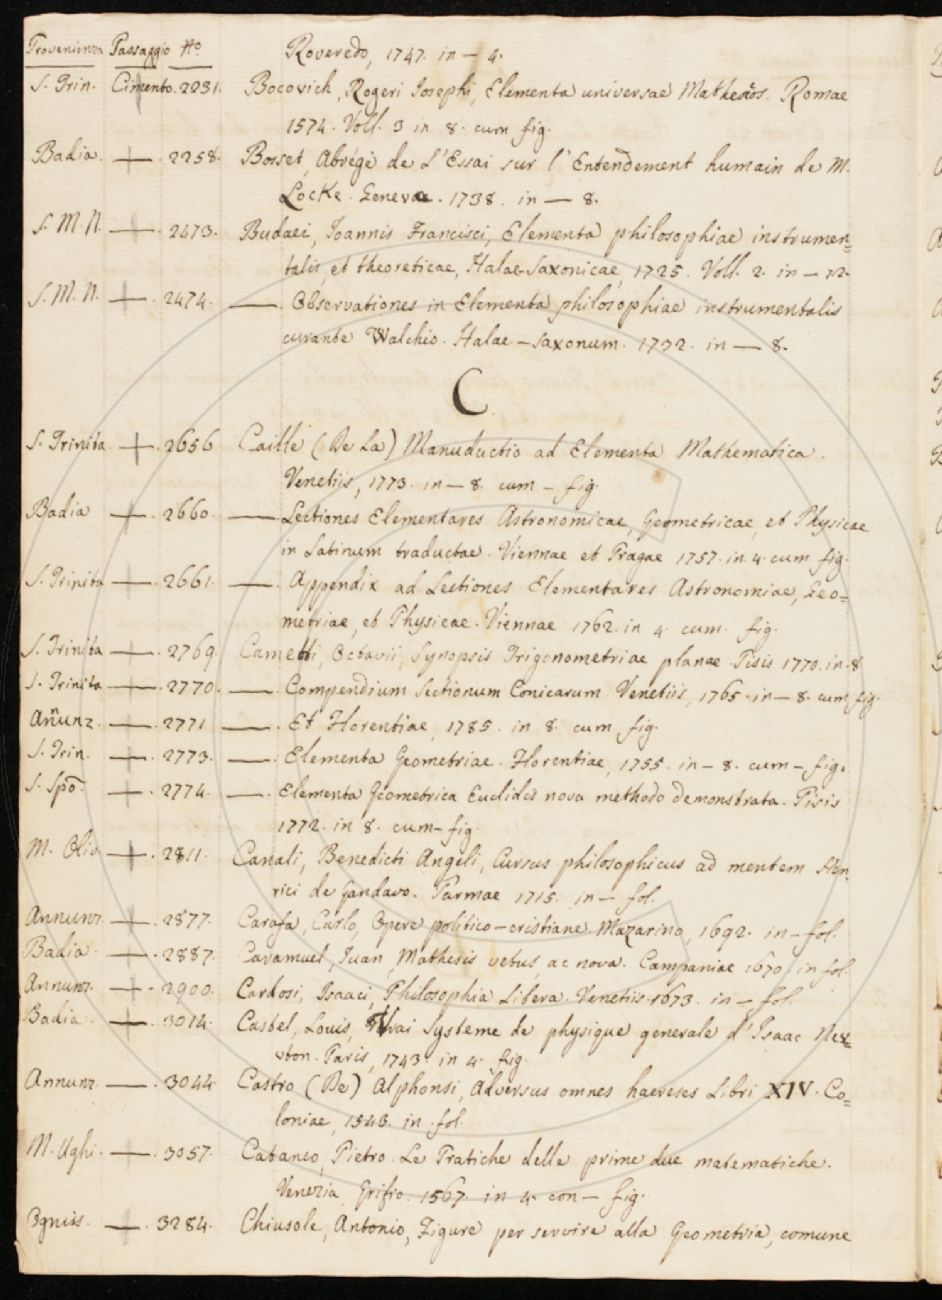 Provenienza Passaggio No. Roveredo, 1747. in — 4.
S. Trin. Cimento. 2231. Bocovich, Rogeri Iosephi, Elementa universae Matheseos. Romae
1574. Voll. 3 in 8. cum fig.
Badia. — . 2258. Bosset, Abrégé de L'Essai sur l'Entendement humain de M.
Locke. Genevae. 1738. in — 8.
S. M. N. — . 2473. Budaei, Joannis Francisci, Elementa philosophiae instrumen=
talis, et theoreticae, Halae-Saxonicae, 1725. Voll. 2. in — 12.
S. M. N. — . 2474. — . Observationes in Elementa philosophiae instrumentalis
curante Walchio. Halae — Saxonum. 1732. in — 8.
C.
S. Trinita — . 2656 Caille (De La) Manuductio ad Elementa Mathematica.
Venetiis, 1773. in — 8. cum — fig.
Badia — . 2660. — . Lectiones Elementares Astronomicae, Geometricae, et Physicae
in Latinum traductae. Viennae et Pragae 1757. in 4. cum fig.
S. Trinita — . 2661. — . Appendix ad Lectiones Elementares Astronomiae, Geo=
metriae, et Physicae. Viennae 1762. in 4. cum fig.
S. Trinita — . 2769 Cametti, Octavii, Synopsis Trigonometriae planae Pisis 1770. in. 8
S. Trinita — . 2770. — . Compendium Sectionum Conicarum. Venetiis, 1765. in — 8. cum fig.
Añunz. — . 2771 — . Et Florentiae, 1785. in 8. cum fig.
S. Trin. — . 2773. — . Elementa Geometriae. Florentiae, 1755. in — 8. cum — fig.
S. Spo. — . 2774. — . Elementa Geometrica Euclidis nova methodo demonstrata. Pisis
1772. in 8. cum — fig.
M. Oliv. — . 2811. Canali, Benedicti Angeli, Cursus philosophicus ad mentem Hen=
rici de Gandavo. Parmae 1715. in — fol.
Annunz. — . 2877. Carafa, Carlo, Opere politico — cristiane Mazarino, 1692. in — fol.
Badia. — . 2887. Caramuel, Iuan, Mathesis vetus, ac nova. Campaniae 1670. in fol.
Annunz. — . 2900. Cardosi, Isaaci, Philosophia Libera. Venetiis 1673. in — fol.
Badia. — . 3014. Castel, Louis, Vrai Systeme de physique generale d'Isaac New=
ton. Paris, 1743. in 4. fig.
Annunz. — . 3044. Castro (De) Alphonsi, Adversus omnes haereses Libri XIV. Co=
loniae, 1543. in fol.
M. Ughi. — . 3057. Cataneo, Pietro. Le Pratiche delle prime due matematiche.
Venezia Grifio. 1567. in 4. con — fig.
— . 3284. Chiusole, Antonio, Figure per servire alla Geometria, comune